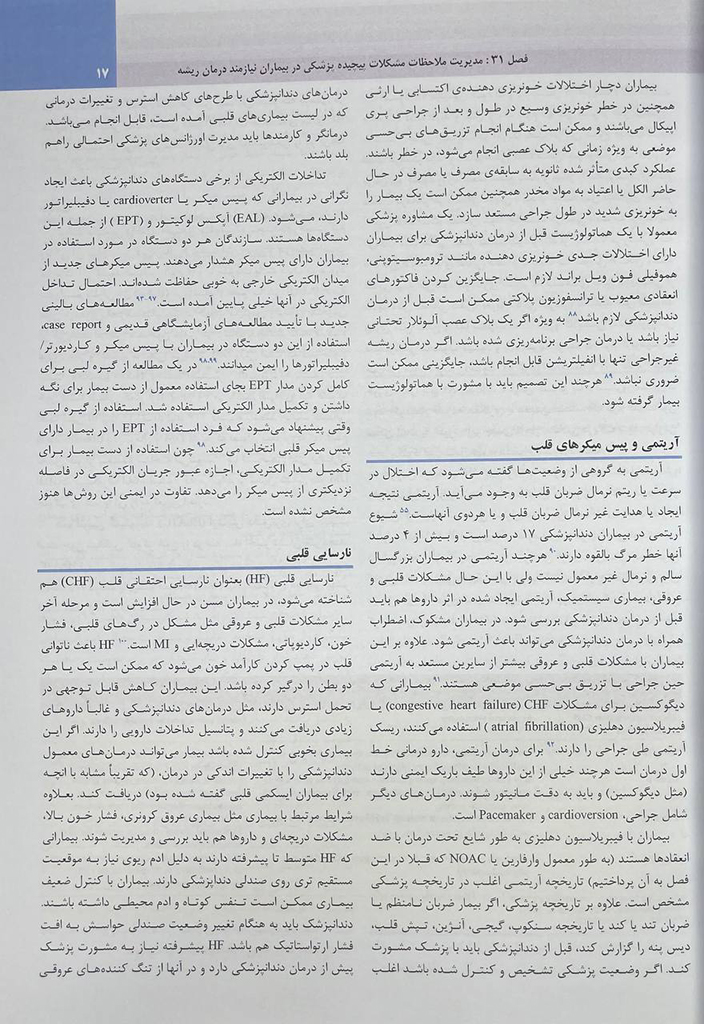 ۱۷
فصل ۳۱: مدیریت ملاحظات مشکلات پیچیده پزشکی در بیماران نیازمند درمان ریشه
بیماران دچار اختلالات خونریزی دهنده‌ی اکتسابی یا ارثی
همچنین در خطر خونریزی وسیع در طول و بعد از جراحی پری
اپیکال می‌باشند و ممکن است هنگام انجام تزریق‌های بی‌حسی
موضعی به ویژه زمانی که بلاک عصبی انجام می‌شود، در خطر باشند.
عملکرد کبدی متأثر شده ثانویه به سابقه‌ی مصرف یا مصرف در حال
حاضر الکل یا اعتیاد به مواد مخدر همچنین ممکن است یک بیمار را
به خونریزی شدید در طول جراحی مستعد سازد. یک مشاوره پزشکی
معمولا با یک هماتولوژیست قبل از درمان دندانپزشکی برای بیماران
دارای اختلالات جدی خونریزی دهنده مانند ترومبوسیتوپنی،
هموفیلی فون ویل براند لازم است. جایگزین کردن فاکتورهای
انعقادی معیوب یا ترانسفوزیون پلاکتی ممکن است قبل از درمان
دندانپزشکی لازم باشد۸۸ به ویژه اگر یک بلاک عصب آلوئلار تحتانی
نیاز باشد یا درمان جراحی برنامه‌ریزی شده باشد. اگر درمان ریشه
غیرجراحی تنها با انفیلتریشن قابل انجام باشد، جایگزینی ممکن است
ضروری نباشد.۸۹ هرچند این تصمیم باید با مشورت با هماتولوژیست
بیمار گرفته شود.
آریتمی و پیس میکرهای قلب
آریتمی به گروهی از وضعیت‌ها گفته می‌شود که اختلال در
سرعت یا ریتم نرمال ضربان قلب به وجود می‌آید. آریتمی نتیجه
ایجاد یا هدایت غیر نرمال ضربان قلب و یا هردوی آنهاست.۵۵ شیوع
آریتمی در بیماران دندانپزشکی ۱۷ درصد است و بیش از ۴ درصد
آنها خطر مرگ بالقوه دارند.۹۰ هرچند آریتمی در بیماران بزرگسال
سالم و نرمال غیر معمول نیست ولی با این حال مشکلات قلبی و
عروقی، بیماری سیستمیک، آریتمی ایجاد شده در اثر داروها هم باید
قبل از درمان دندانپزشکی بررسی شود. در بیماران مشکوک، اضطراب
همراه با درمان دندانپزشکی می‌تواند باعث آریتمی شود. علاوه بر این
بیماران با مشکلات قلبی و عروقی بیشتر از سایرین مستعد به آریتمی
حین جراحی با تزریق بی‌حسی موضعی هستند.۹۱ بیمارانی که
دیگوکسین برای مشکلات CHF (congestive heart failure) یا
فیبریلاسیون دهلیزی (atrial fibrillation) استفاده می‌کنند، ریسک
آریتمی طی جراحی را دارند.۹۲ برای درمان آریتمی، دارو درمانی خط
اول درمان است هرچند خیلی از این داروها طیف باریک ایمنی دارند
(مثل دیگوکسین) و باید به دقت مانیتور شوند. درمان‌های دیگر
شامل جراحی، cardioversion و Pacemaker است.
بیماران با فیبریلاسیون دهلیزی به طور شایع تحت درمان با ضد
انعقادها هستند (به طور معمول وارفارین یا NOAC که قبلا در این
فصل به آن پرداختیم) تاریخچه آریتمی اغلب در تاریخچه پزشکی
مشخص است. علاوه بر تاریخچه پزشکی، اگر بیمار ضربان نامنظم یا
ضربان تند یا کند یا تاریخچه سنکوپ، گیجی، آنژین، تپش قلب،
دیس پنه را گزارش کند، قبل از دندانپزشکی باید با پزشک مشورت
کند. اگر وضعیت پزشکی تشخیص و کنترل شده باشد اغلب
درمان‌های دندانپزشکی با طرح‌های کاهش استرس و تغییرات درمانی
که در لیست بیماری‌های قلبی آمده است، قابل انجام می‌باشد.
درمانگر و کارمندها باید مدیرت اورژانس‌های پزشکی احتمالی راهم
بلد باشند.
تداخلات الکتریکی از برخی دستگاه‌های دندانپزشکی باعث ایجاد
نگرانی در بیمارانی که پیس میکر یا cardioverter یا دفیبلیراتور
دارند، می‌شود. (EAL) آپکس لوکیتور و (EPT) از جمله این
دستگاه‌ها هستند. سازندگان هر دو دستگاه در مورد استفاده در
بیماران دارای پیس میکر هشدار می‌دهند. پیس میکرهای جدید از
میدان الکتریکی خارجی به خوبی حفاظت شده‌اند. احتمال تداخل
الکتریکی در آنها خیلی پایین آمده است.۹۳-۹۷ مطالعه‌های بالینی
جدید با تأیید مطالعه‌های آزمایشگاهی قدیمی و case report،
استفاده از این دو دستگاه در بیماران با پیس میکر و کاردیورتر/
دفیبلیراتورها را ایمن میدانند.۹۸،۹۹ در یک مطالعه از گیره لبی برای
کامل کردن مدار EPT بجای استفاده معمول از دست بیمار برای نگه
داشتن و تکمیل مدار الکتریکی استفاده شد. استفاده از گیره لبی
وقتی پیشنهاد می‌شود که فرد استفاده از EPT را در بیمار دارای
پیس میکر قلبی انتخاب می‌کند.۹۸ چون استفاده از دست بیمار برای
تکمیل مدار الکتریکی، اجازه عبور جریان الکتریکی در فاصله
نزدیکتری از پیس میکر را می‌دهد. تفاوت در ایمنی این روش‌ها هنوز
مشخص نشده است.
نارسایی قلبی
نارسایی قلبی (HF) بعنوان نارسایی احتقانی قلب (CHF) هم
شناخته می‌شود، در بیماران مسن در حال افزایش است و مرحله آخر
سایر مشکلات قلبی و عروقی مثل مشکل در رگ‌های قلبی، فشار
خون، کاردیوپاتی، مشکلات دریچه‌ایی و MI است.۱۰۰ HF باعث ناتوانی
قلب در پمپ کردن کارآمد خون می‌شود که ممکن است یک یا هر
دو بطن را درگیر کرده باشد. این بیماران کاهش قابل توجهی در
تحمل استرس دارند، مثل درمان‌های دندانپزشکی و غالباً داروهای
زیادی دریافت می‌کنند و پتانسیل تداخلات دارویی را دارند. اگر این
بیماری بخوبی کنترل شده باشد بیمار می‌تواند درمان‌های معمول
دندانپزشکی را با تغییرات اندکی در درمان، (که تقریباً مشابه با انچه
برای بیماران ایسکمی قلبی گفته شده بود) دریافت کند. بعلاوه
شرایط مرتبط با بیماری مثل بیماری عروق کرونری، فشار خون بالا،
مشکلات دریچه‌ای و داروها هم باید بررسی و مدیریت شوند. بیمارانی
که HF متوسط تا پیشرفته دارند به دلیل ادم ریوی نیاز به موقعیت
مستقیم تری روی صندلی دنداپزشکی دارند. بیماران با کنترل ضعیف
بیماری ممکن است تنفس کوتاه و ادم محیطی داشته باشند.
دندانپزشک باید به هنگام تغییر وضعیت صندلی حواسش به افت
فشار ارتواستاتیک هم باشد. HF پیشرفته نیاز به مشورت پزشک
پیش از درمان دندانپزشکی دارد و در آنها از تنگ کننده‌های عروقی